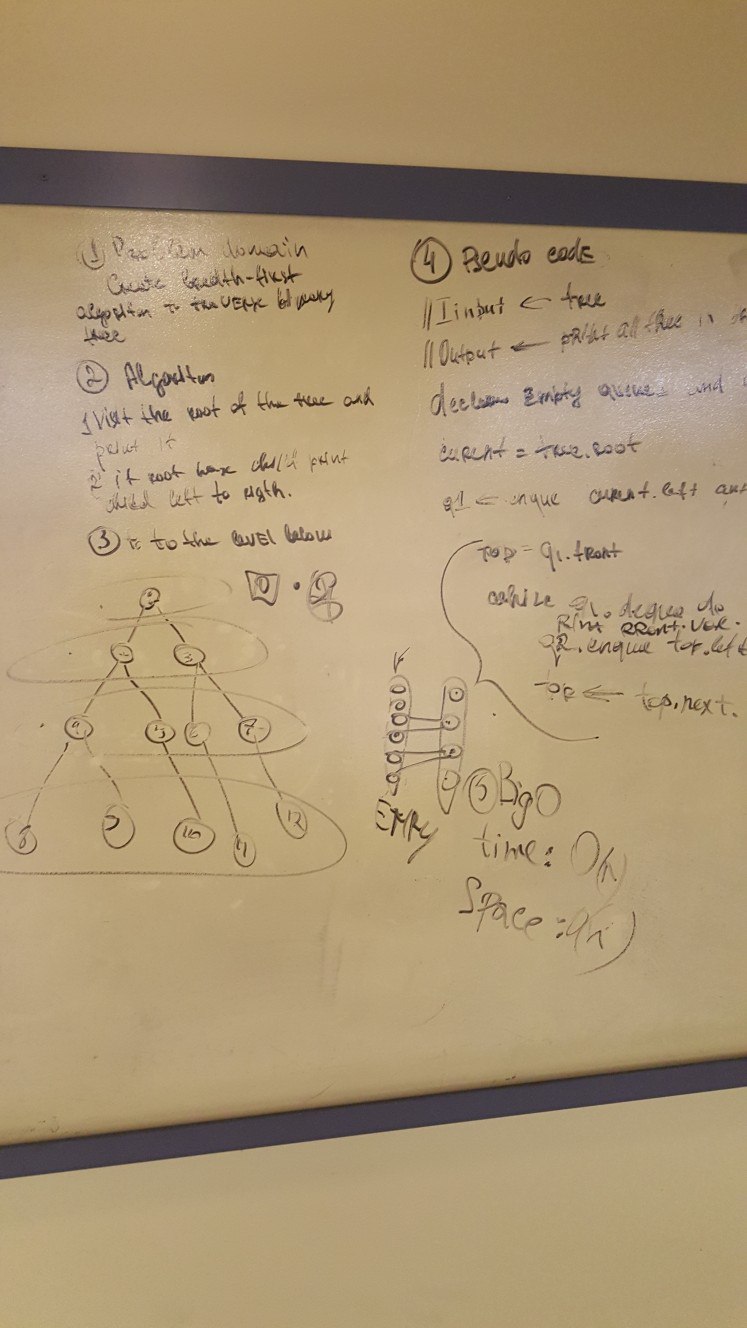 ① Problem domain
Create breadth-first
algorithm to traverse binary
tree
② Algorithm
1 Visit the root of the tree and
print it
2 if root have child print
child left to rigth.
③ to the level below
④ Pseudo code
// Iinput ← tree
// Output ← print all tree in
declare Empty queue and
curent = tree.root
q1 ← enque curent.left and
top = q1.front
while q1.deque do
Print front.
q2.enque top.left
top ← top.next.
2 3
5 6 7
10 11 12
⑤ Big O
time: O(n)
Space: O(n)